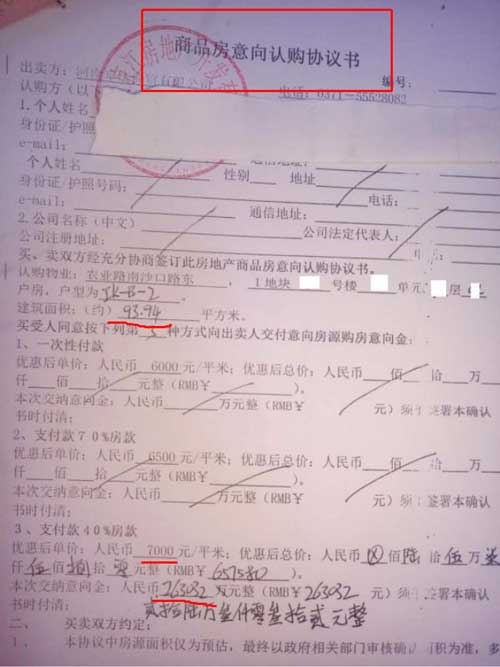 商品房意向认购协议书
出卖方：河南 有限公司 编号：
认购方（以 电话：0371-55528082
1.个人姓名
身份证/护照
e-mail: 通信地址：
个人姓名 性别 地址
身份证/护照号码： 电话：
e-mail: 通信地址：
2.公司名称（中文） 公司法定代表人：
公司注册地址：
买、卖双方经充分协商签订此房地产商品房意向认购协议书。
认购物业：农业路南沙口路东，1地块 号楼 单元 层
户房，户型为JK-B-2。
建筑面积：（约）93.94 平方米。
买受人同意按下列第3种方式向出卖人交付意向房源购房意向金：
1、一次性付款
优惠后单价：人民币 6000 元/平米；优惠后总价：人民币 佰 拾 万
仟 佰 拾 元整（RMB¥
本次交纳意向金：人民币 万元整（RMB¥ 元）须 签署本确认
书时付清：
2、支付款70%房款
优惠后单价：人民币 6500 元/平米；优惠后总价：人民币 佰 拾 万
仟 佰 拾 元整（RMB¥
本次交纳意向金：人民币 万元整（RMB¥ 元）须 签署本确认
书时付清：
3、支付款40%房款
优惠后单价：人民币 7000 元/平米；优惠后总价：人民币 佰陆拾伍万
仟伍佰捌拾零元整（RMB¥ 657580
本次交纳意向金：人民币263032万元整（RMB¥263032 元）须 签署本确认
书时付清：贰拾陆万叁仟零叁拾贰元整
二、 买卖双方约定：
1、 本协议中房源面积仅为预估，最终以政府相关部门审核确 面积为准，多